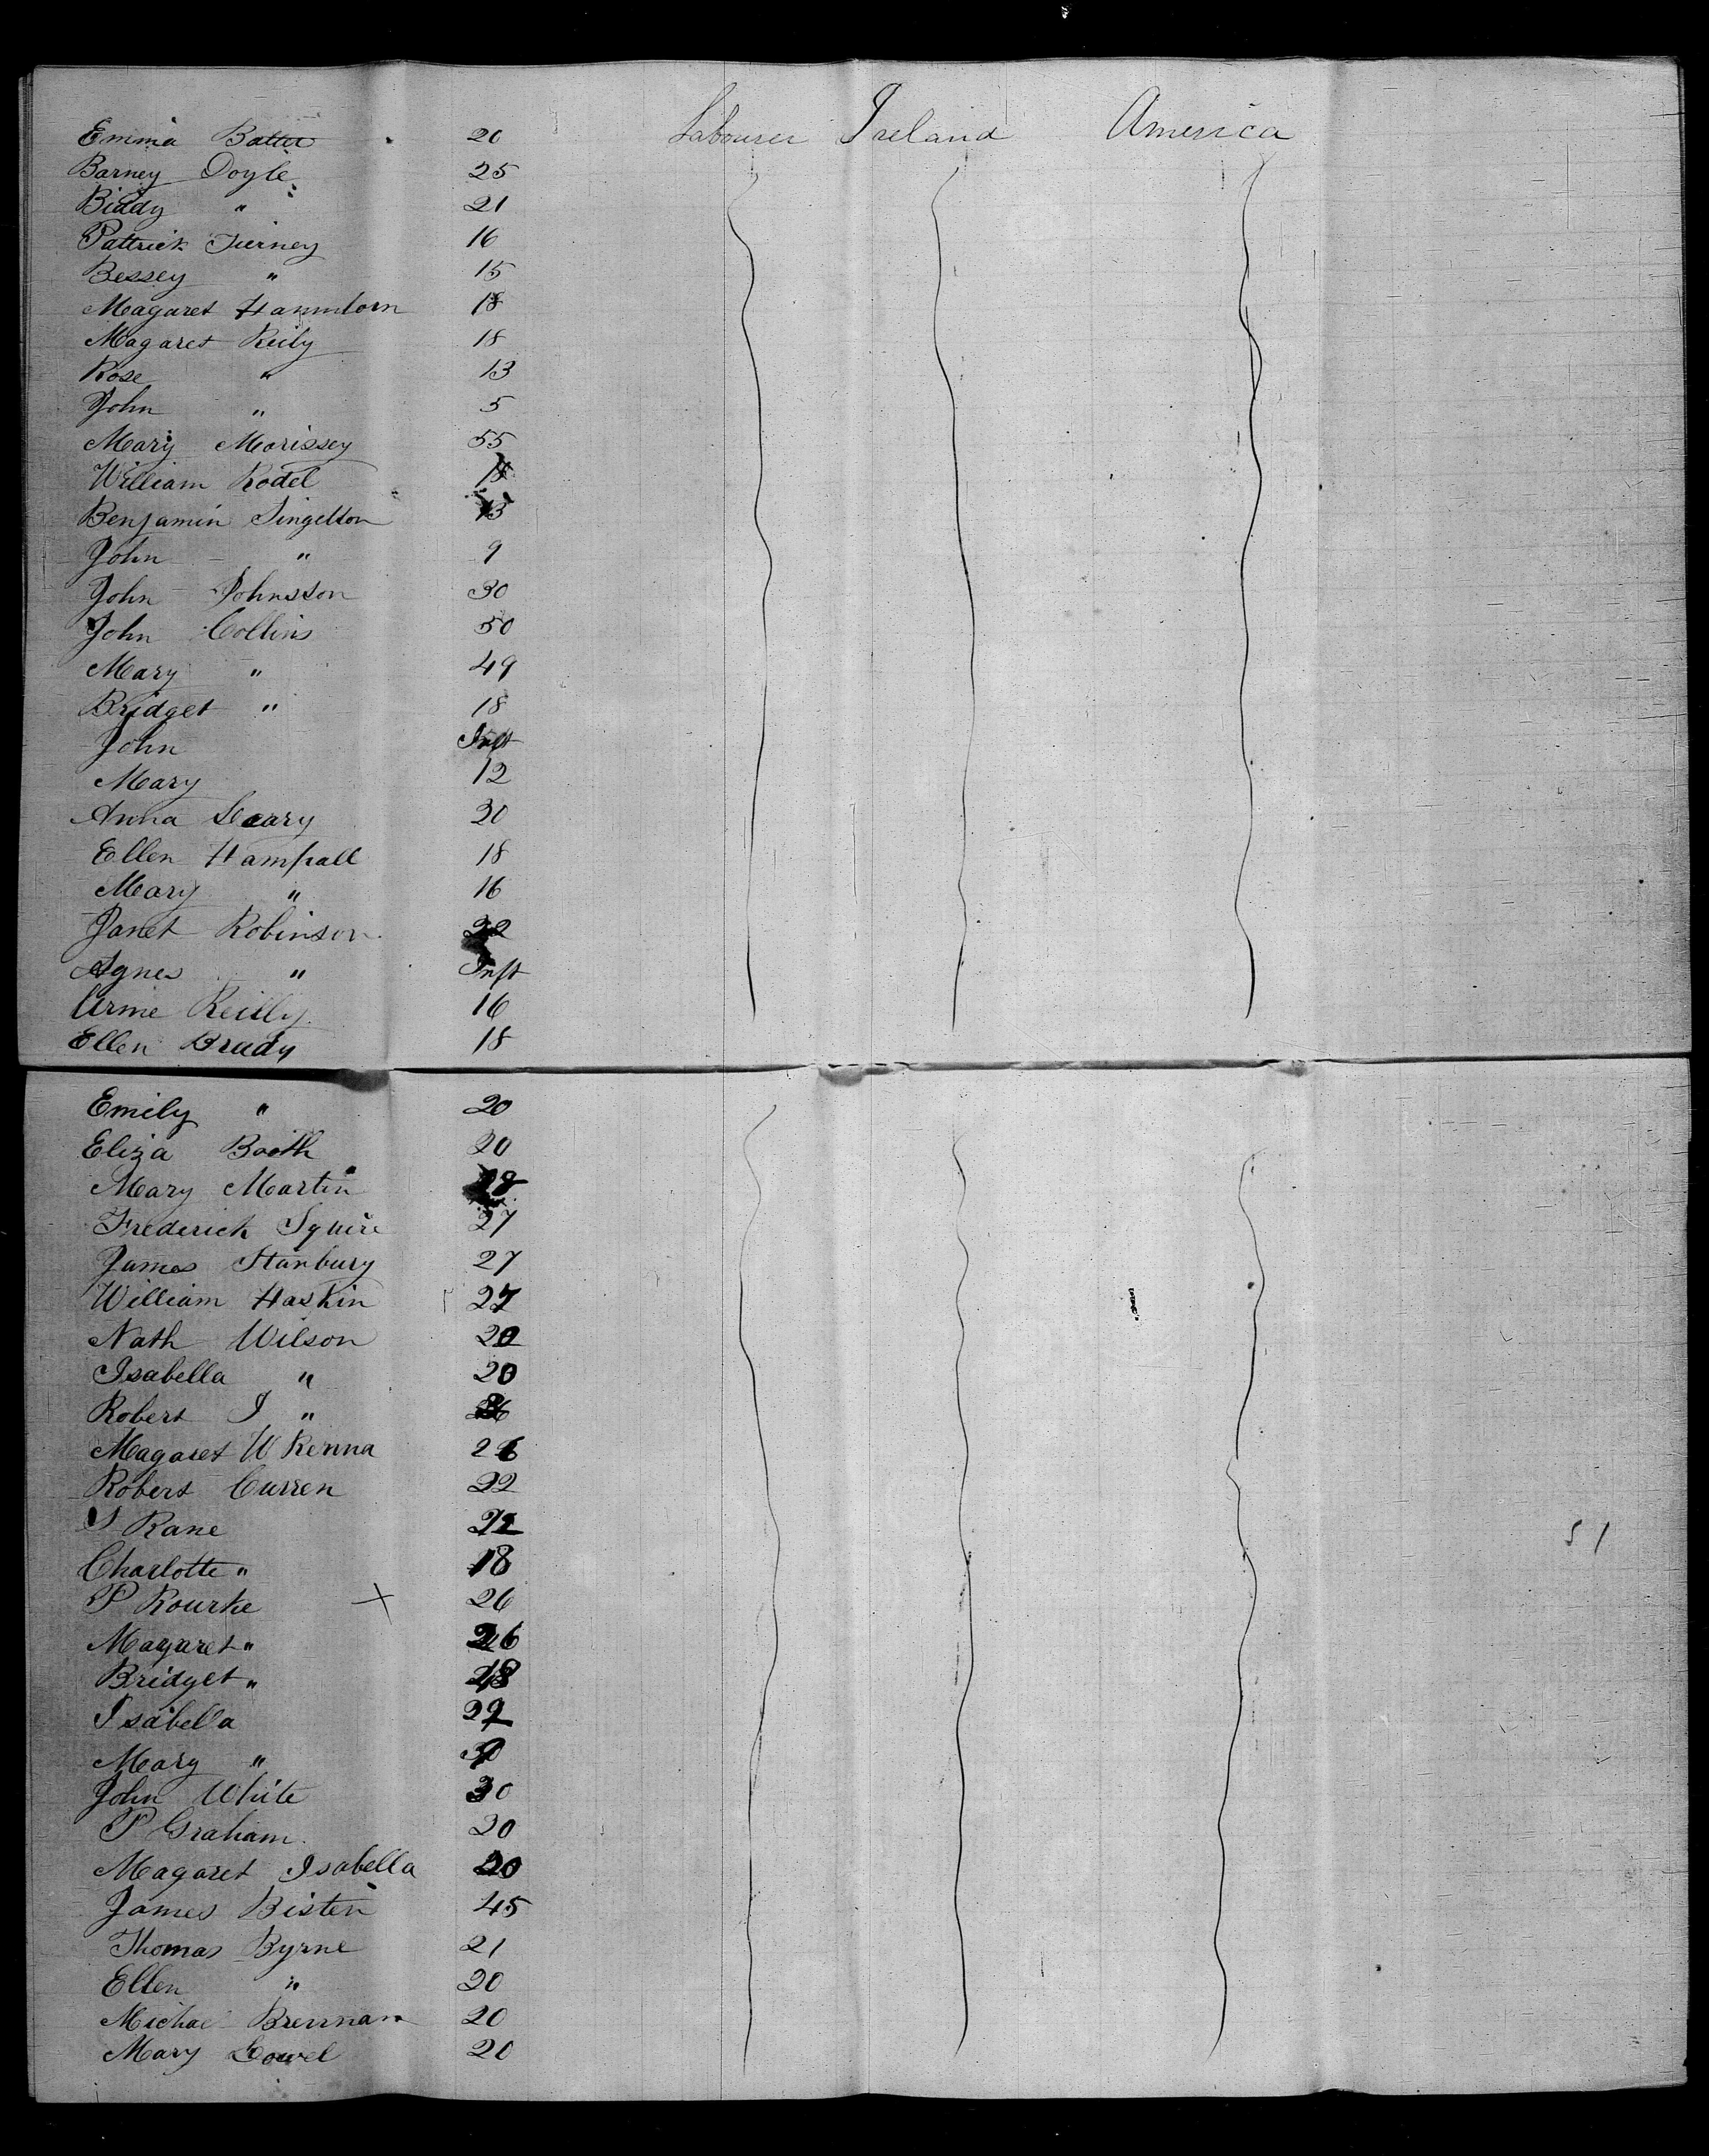 Emma Batter 20 Labourer Ireland America
Barney Doyle 25
Biddy " 21
Pattrick Tierney 16
Bessey " 15
Magaret 18
Magaret Reily 18
Rose " 13
John " 5
Mary Morissey 55
William Rodel 18
Benjamin Singelton 13
John " 9
John Johnston 30
John Collins 50
Mary " 49
Bridget " 18
John Inft
Mary 12
Anna Leary 20
Ellen Hampall 18
Mary " 16
Janet Robinson 22
Agnes " Inft
Anne Reilly 16
Ellen Brady 18
Emily " 20
Eliza Booth 20
Mary Martin 28
Frederick Squire 27
James Stanbury 27
William Haskin 27
Nath Wilson 20
Isabella " 20
Robert J "
Magaret W Kenna 26
Robert Curren 22
Kane 22
Charlotte " 18
P Rourke × 26
Magaret " 26
Bridget " 18
Isabella 22
Mary "
John White 30
P Graham 20
Magaret Isabella 20
James Bisten 45
Thomas Byrne 21
Ellen " 20
Michael Brennan 20
Mary 20
51